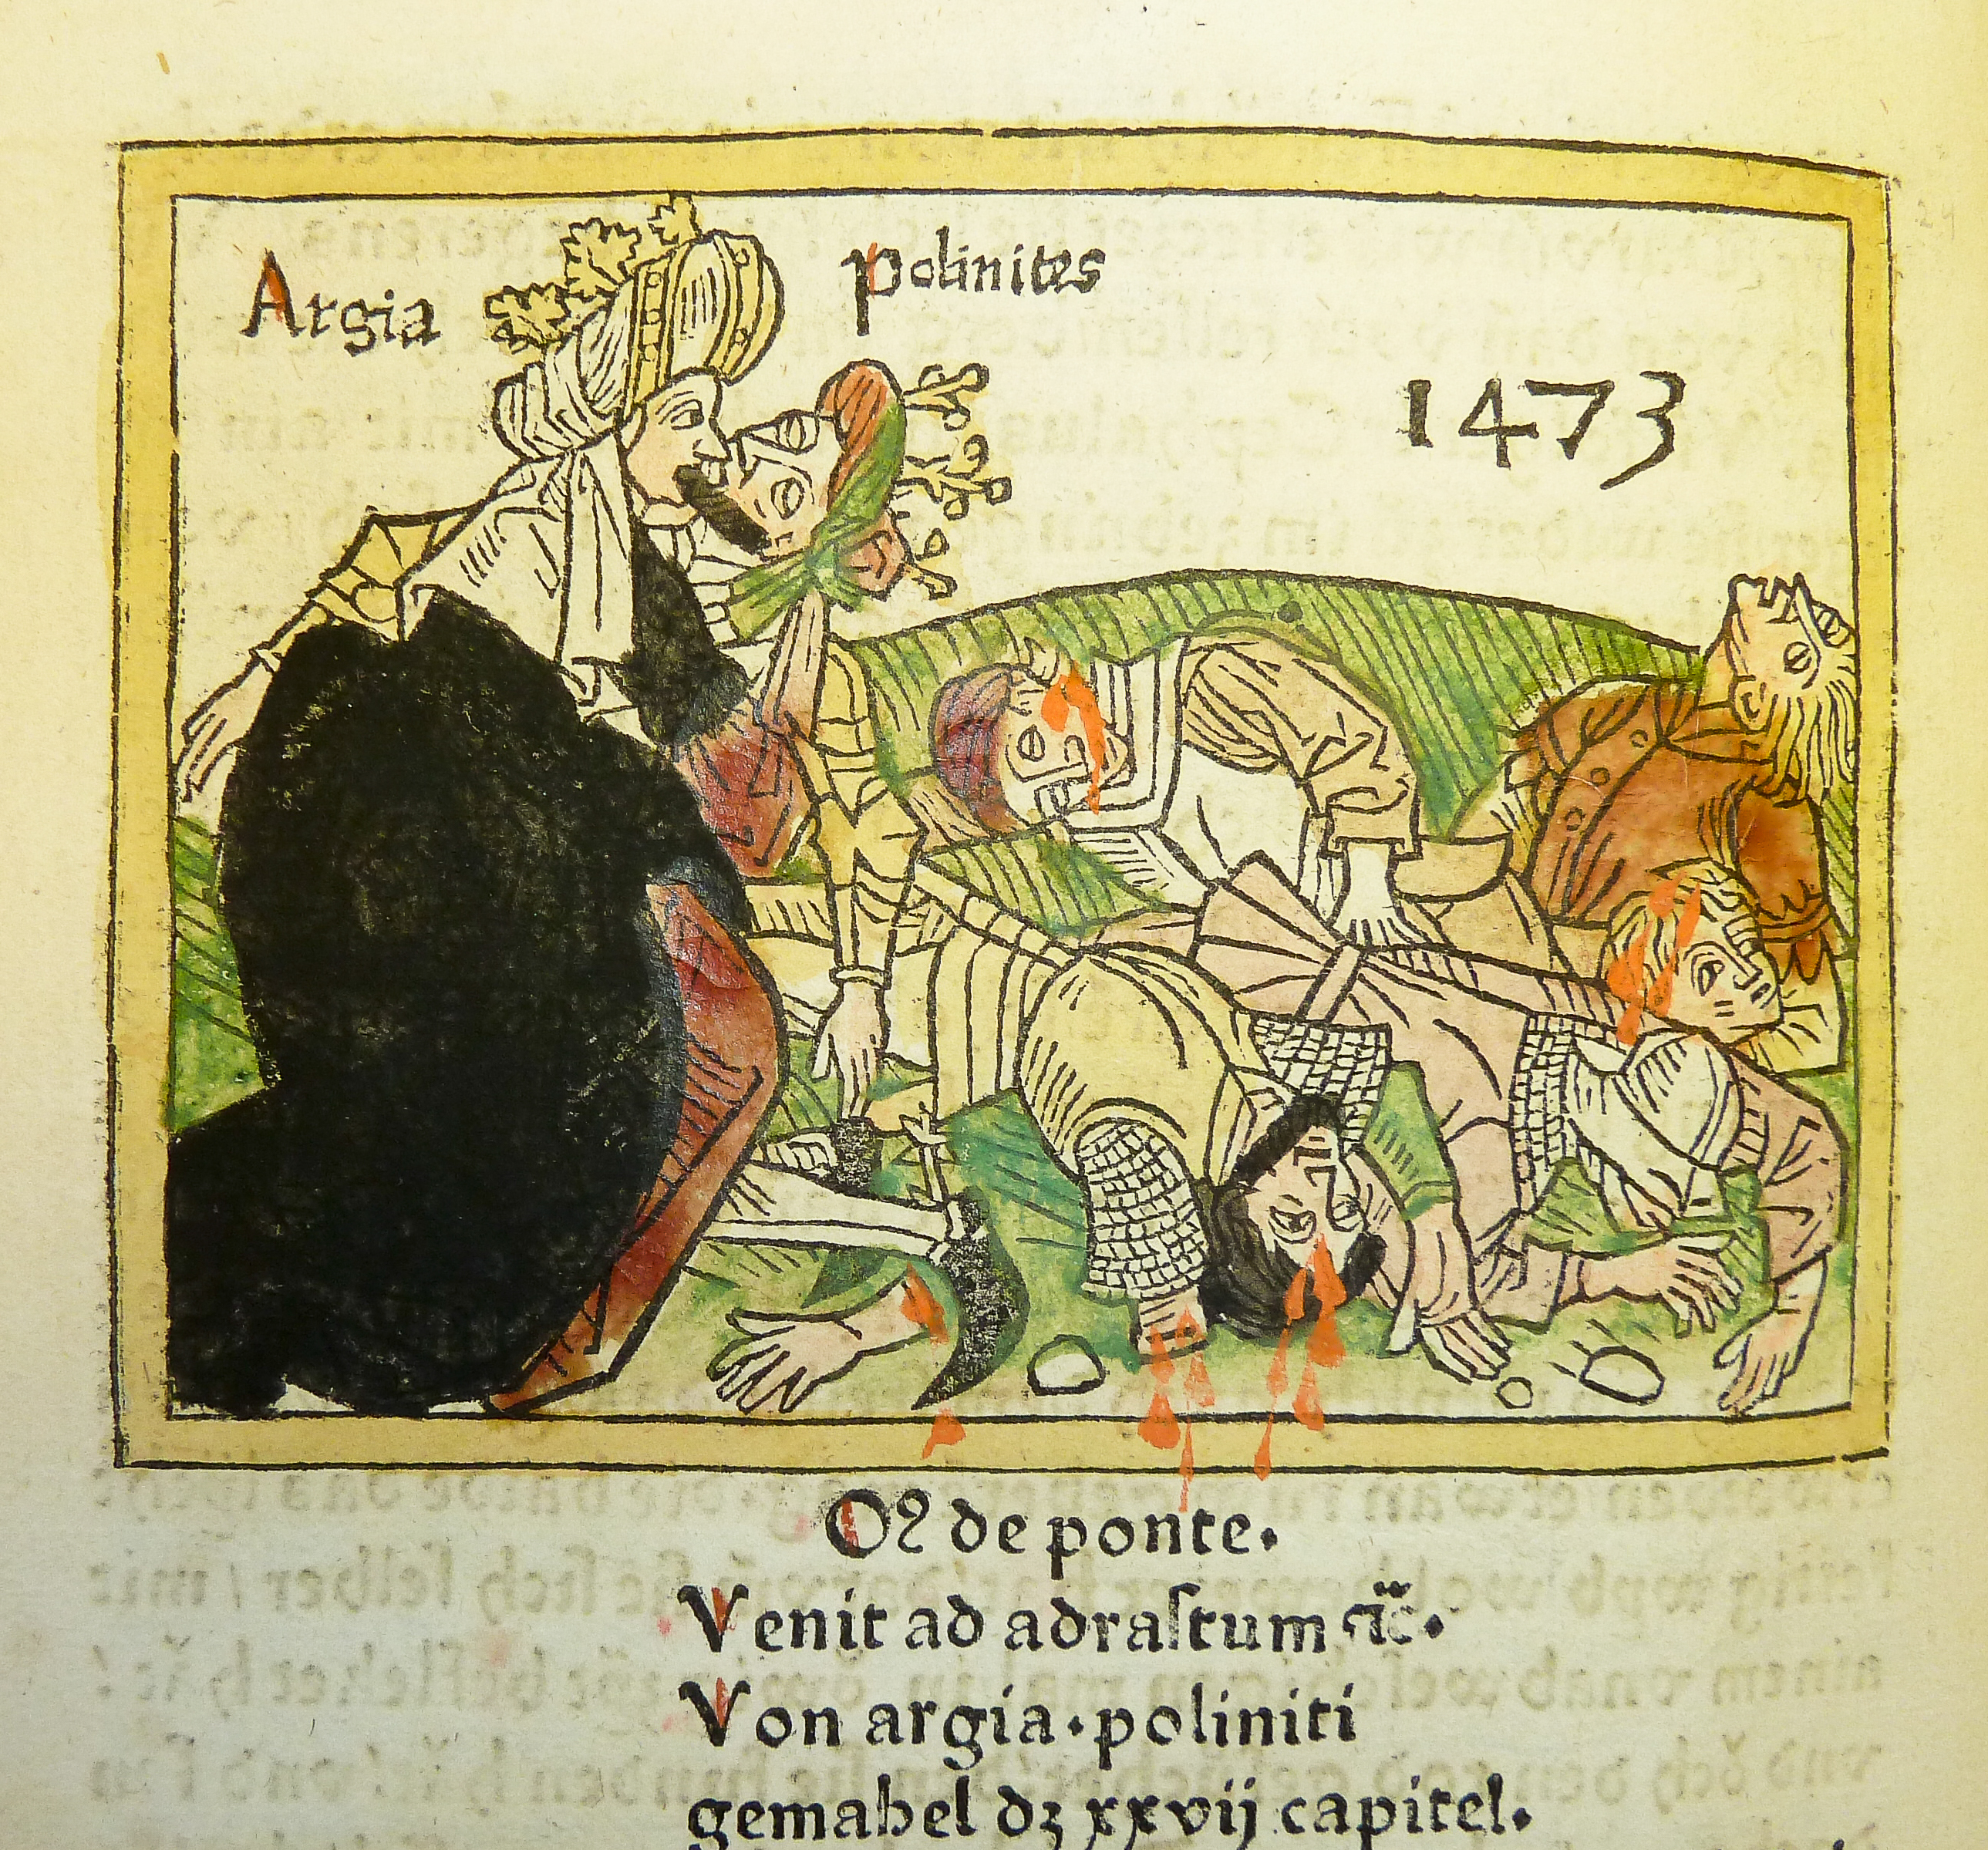 Argia
polinites
1473
Oꝛ de ponte.
Venit ad adraſtum ⁊c̈.
Von argia·poliniti
gemahel dʒ xxvij capitel.